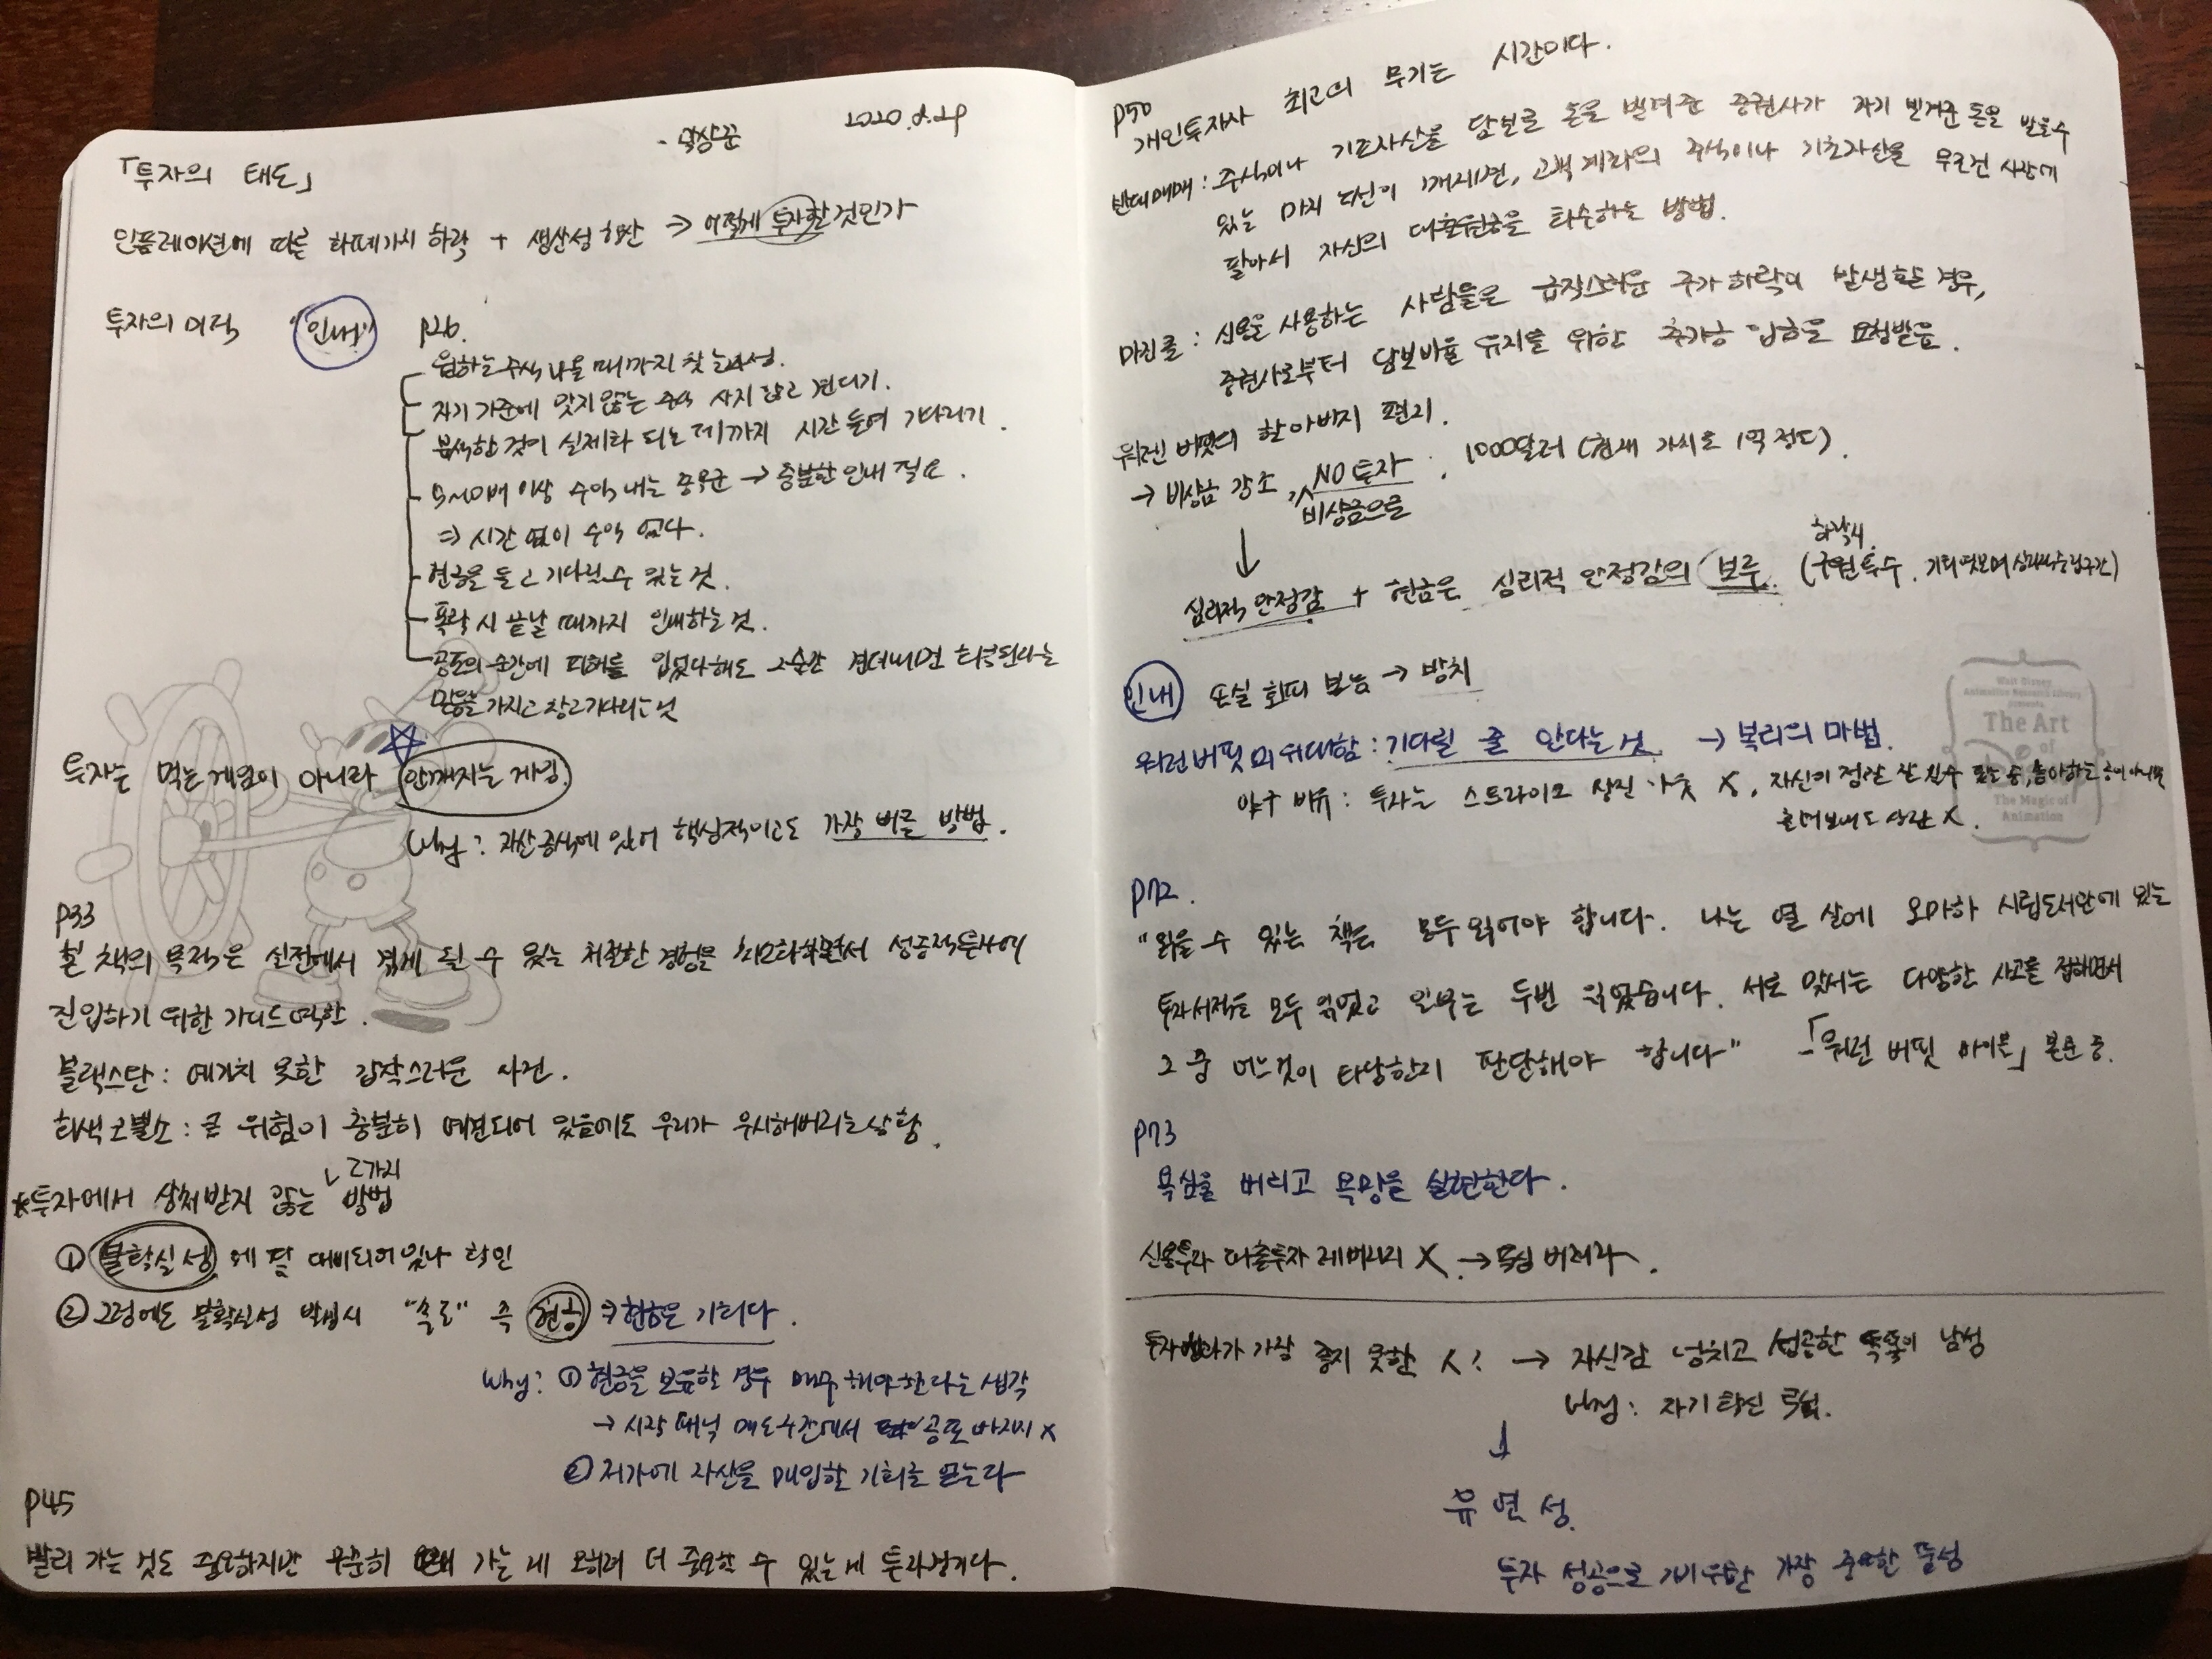 「투자의 태도」
2020.
인플레이션에 따른 화폐가치 하락 + 생산성 → 어떻게 투자할것인가
투자의 미덕 "인내" p26.
원하는 주식 나올 때까지 찾는
자기 기준에 맞지 않는 주식 사지 않고 견디기.
분석한 것이 실제화 되는 때까지 시간 들여 기다리기.
5~10배 이상 수익 내는 종목군 → 충분한 인내 필요.
⇒ 시간 없이 수익 없다.
현금을 들고 기다릴 수 있는 것.
폭락 시 끝날 때까지 인내하는 것.
공포의 순간에 피해를 입었다해도 그순간 견뎌내면 회복된다는
믿음을 가지고 참고 기다리는 것
투자는 먹는게임이 아니라 안깨지는 게임.
Why? 자산증식에 있어 핵심적이고도 가장 빠른 방법.
p33
본 책의 목적은 실전에서 겪게 될 수 있는 처절한 경험을 최소화하면서 성공적투자에
진입하기 위한 가이드 역할.
블랙스완 : 예기치 못한 갑작스러운 사건.
회색코뿔소 : 큰 위험이 충분히 예견되어 있음에도 우리가 무시해버리는 상황.
*투자에서 상처받지 않는 2가지 방법
① 불확실성에 잘 대비되어있나 확인
② 그럼에도 불확실성 발생시 "속도" 즉 현금 ⇒ 현금은 기회다.
Why? ① 현금을 보유할 경우 매수 해야한다는 생각
→ 시장 패닉 매도구간에서 공포 빠지지 X
② 저가에 자산을 매입할 기회를 얻는다
p45
빨리 가는 것도 중요하지만 꾸준히 오래 가는 게 오히려 더 중요할 수 있는 게 투자경기다.
p50
개인투자자 최고의 무기는 시간이다.
반대매매 : 주식이나 기초자산을 담보로 돈을 빌려준 증권사가 자기 빌려준 돈을 받을수
있는 마지노선이 깨지면, 고객 계좌의 주식이나 기초자산을 무조건 시장에
팔아서 자신의 대출원금을 회수하는 방법.
마진콜 : 신용을 사용하는 사람들은 급작스러운 주가하락이 발생할 경우,
증권사로부터 담보비율 유지를 위한 추가금 입금을 요청받음.
워렌 버핏의 할아버지 편지.
→ 비상금 강조, 비상금으로 NO 투자. 1000달러 (현재 가치로 1억 정도).
↓
심리적 안정감 + 현금은 심리적 안정감의 보루. (하락시 구원투수. 기회엿보며
인내 손실 회피 본능 → 방치
워런버핏의 위대함 : 기다릴 줄 안다는 것. → 복리의 마법.
야구 비유 : 투자는 스트라이크 삼진 아웃 X, 자신이 정말 잘 칠수 있는 공, 좋아하는 공이 아니면
흘려보내도 상관 X.
p72.
"읽을 수 있는 책은 모두 읽어야 합니다. 나는 열 살에 오마하 시립도서관에 있는
투자서적을 모두 읽었고 일부는 두번 읽었습니다. 서로 맞서는 다양한 사고를 접하면서
그 중 어느것이 타당한지 판단해야 합니다" -「워런 버핏 바이블」본문 중.
p73
욕심을 버리고 욕망을 실현한다.
신용투자 대출투자 레버리지 X. → 욕심 버려라.
투자 가장 좋지 못한 人? → 자신감 넘치고 성공한 똑똑이 남성
Why : 자기 확신
↓
유연성.
투자 성공으로 가기 위한 가장 중요한 특성
The Art
of
The Magic of
Animation